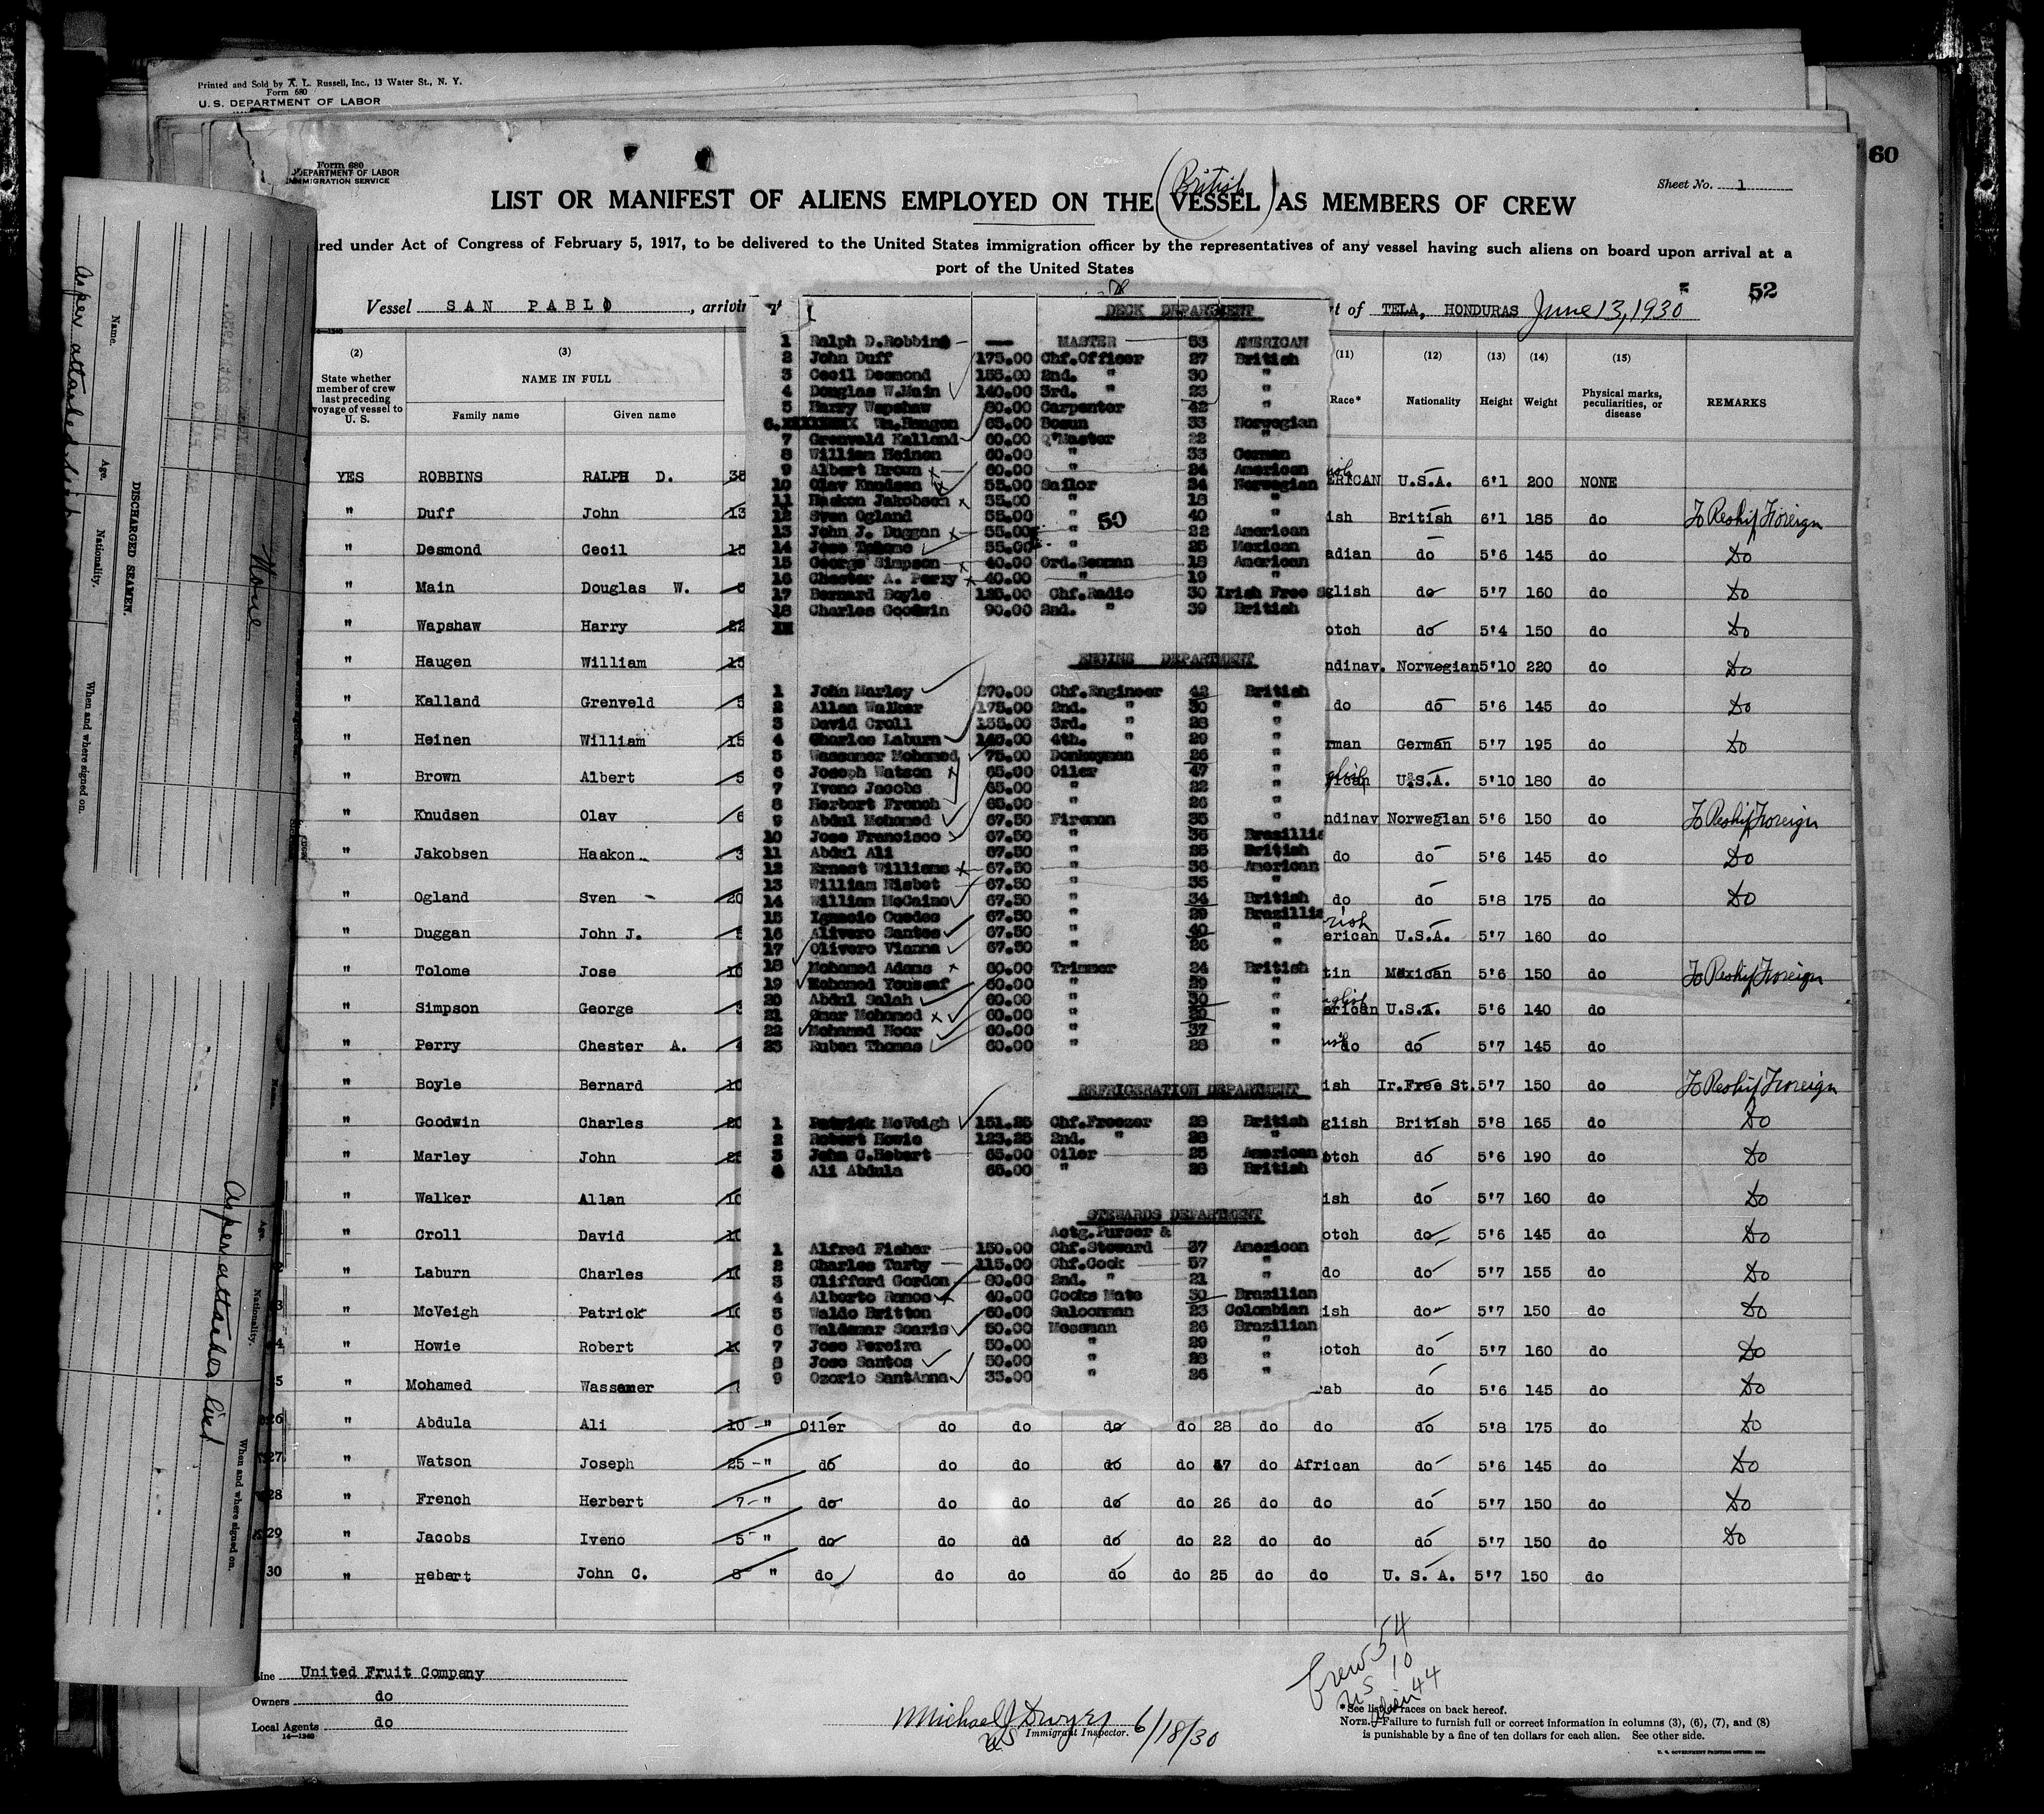 Printed and Sold by A. L. Russell, Inc., 13 Water St., N. Y.
Form 680
U. S. DEPARTMENT OF LABOR
60
Form 680
DEPARTMENT OF LABOR
IMMIGRATION SERVICE
Sheet No. 1
LIST OR MANIFEST OF ALIENS EMPLOYED ON THE (British VESSEL) AS MEMBERS OF CREW
red under Act of Congress of February 5, 1917, to be delivered to the United States immigration officer by the representatives of any vessel having such aliens on board upon arrival at a
port of the United States
52
Vessel SAN PABLO, arrivin
rt of TELA, HONDURAS June 13, 1930
(2) (3) (11) (12) (13) (14) (15)
State whether member of crew last preceding voyage of vessel to U. S.
NAME IN FULL
Family name Given name
Race* Nationality Height Weight Physical marks, peculiarities, or disease REMARKS
YES ROBBINS RALPH D. 35 ERICAN U.S.A. 6'1 200 NONE
" Duff John 13 ish British 6'1 185 do To Reship Foreign
" Desmond Cecil 15 adian do 5'6 145 do Do
" Main Douglas W. 5 glish do 5'7 160 do Do
" Wapshaw Harry 22 otch do 5'4 150 do Do
" Haugen William 15 ndinav. Norwegian 5'10 220 do Do
" Kalland Grenveld 5 do do 5'6 145 do Do
" Heinen William 15 rman German 5'7 195 do Do
" Brown Albert 5 rican U.S.A. 5'10 180 do
" Knudsen Olav 6 ndinav Norwegian 5'6 150 do To Reship Foreign
" Jakobsen Haakon 3 do do 5'6 145 do Do
" Ogland Sven 20 do do 5'8 175 do Do
" Duggan John J. 5 erican U.S.A. 5'7 160 do
" Tolome Jose 10 tin Mexican 5'6 150 do To Reship Foreign
" Simpson George 3 erican U.S.A. 5'6 140 do
" Perry Chester A. 4 do do 5'7 145 do
" Boyle Bernard 10 ish Ir.Free St. 5'7 150 do To Reship Foreign
" Goodwin Charles 20 glish British 5'8 165 do Do
" Marley John 25 otch do 5'6 190 do Do
" Walker Allan 10 ish do 5'7 160 do Do
" Croll David 10 otch do 5'6 145 do Do
" Laburn Charles 10 do do 5'7 155 do Do
" McVeigh Patrick 10 ish do 5'7 150 do Do
" Howie Robert 10 otch do 5'7 160 do Do
" Mohamed Wassamer rab do 5'6 145 do Do
26 " Abdula Ali 10 " Oiler do do do do 28 do do do 5'8 175 do Do
27 " Watson Joseph 25 " do do do do do 47 do African do 5'6 145 do Do
28 " French Herbert 7 " do do do do do 26 do do do 5'7 150 do Do
29 " Jacobs Iveno 5 " do do do do do 22 do do do 5'7 150 do Do
30 " Hebert John C. 8 " do do do do do 25 do do U. S. A. 5'7 150 do
DECK DEPARTMENT
1 Ralph D.Robbins MASTER 53 AMERICAN
2 John Duff 175.00 Chf.Officer 27 British
3 Cecil Desmond 155.00 2nd. " 30 "
4 Douglas W.Main 140.00 3rd. " 23 "
5 Harry Wapshaw 80.00 Carpenter 42 "
6. XXXXXXXX Wm.Haugen 65.00 Bosun 33 Norwegian
7 Grenveld Kalland 60.00 Q'Master 22 "
8 William Heinen 60.00 " 33 German
9 Albert Brown 60.00 " 24 American
10 Olav Knudsen 55.00 Sailor 34 Norwegian
11 Haakon Jakobsen 35.00 " 18 "
12 Sven Ogland 55.00 " 40 "
50
13 John J. Duggan 55.00 " 22 American
14 Jose Tolome 55.00 " 25 Mexican
15 George Simpson 40.00 Ord.Seaman 18 American
16 Chester A. Perry 40.00 " 19 "
17 Bernard Boyle 125.00 Chf.Radio 30 Irish Free S
18 Charles Goodwin 90.00 2nd. " 39 British
ENGINE DEPARTMENT
1 John Marley 270.00 Chf.Engineer 42 British
2 Allan Walker 175.00 2nd. " 30 "
3 David Croll 155.00 3rd. " 28 "
4 Charles Laburn 140.00 4th. " 29 "
5 Wassamer Mohamed 75.00 Donkeyman 26 "
6 Joseph Watson 65.00 Oiler 47 "
7 Iveno Jacobs 65.00 " 22 "
8 Herbert French 65.00 " 26 "
9 Abdul Mohamed 67.50 Fireman 35 "
10 Jose Francisco 67.50 " 36 Brazilli
11 Abdul Ali 67.50 " 25 British
12 Ernest Williams 67.50 " 36 American
13 William Nisbet 67.50 " 35 "
14 William McCaine 67.50 " 34 British
15 Ignacio Guedes 67.50 " 29 Brazilli
16 Alivero Santos 67.50 " 40 "
17 Olivero Vianna 67.50 " 26 "
18 Mohamed Adams 60.00 Trimmer 24 British
19 Mohamed Youssaf 60.00 " 29 "
20 Abdul Salah 60.00 " 30 "
21 Omar Mohamed 60.00 " "
22 Mohamed Noor 60.00 " 37 "
23 Ruben Thomas 60.00 " 28 "
REFRIGERATION DEPARTMENT
1 Patrick McVeigh 151.25 Chf.Freezer 28 British
2 Robert Howie 123.25 2nd. " 28 "
3 John C.Hebert 65.00 Oiler 25 American
4 Ali Abdula 65.00 " 28 British
STEWARDS DEPARTMENT
Actg.Purser &
1 Alfred Fisher 150.00 Chf.Steward 37 American
2 Charles Tarty 115.00 Chf.Cook 57 "
3 Clifford Gordon 80.00 2nd. " 21 "
4 Alberto Ramos 40.00 Cooks Mate 30 Brazilian
5 Waldo Britton 60.00 Saloonman 23 Colombian
6 Waldemar Soaris 50.00 Messman 26 Brazilian
7 Jose Pereira 50.00 " 29 "
8 Jose Santos 50.00 " 28 "
9 Ozorio SantAnna 35.00 " 26 "
DISCHARGED SEAMEN.
Name. Age. Nationality. When and where signed on.
As per attached list
None
Name. Age. Nationality. When and where signed on.
As per attached list
Line United Fruit Company
Owners do
Local Agents do
14—1240
Michael J Dwyer 6/18/30
US Immigrant Inspector.
Crew 54
US 10
Alien 44
*See list of races on back hereof.
NOTE.—Failure to furnish full or correct information in columns (3), (6), (7), and (8)
is punishable by a fine of ten dollars for each alien. See other side.
U. S. GOVERNMENT PRINTING OFFICE